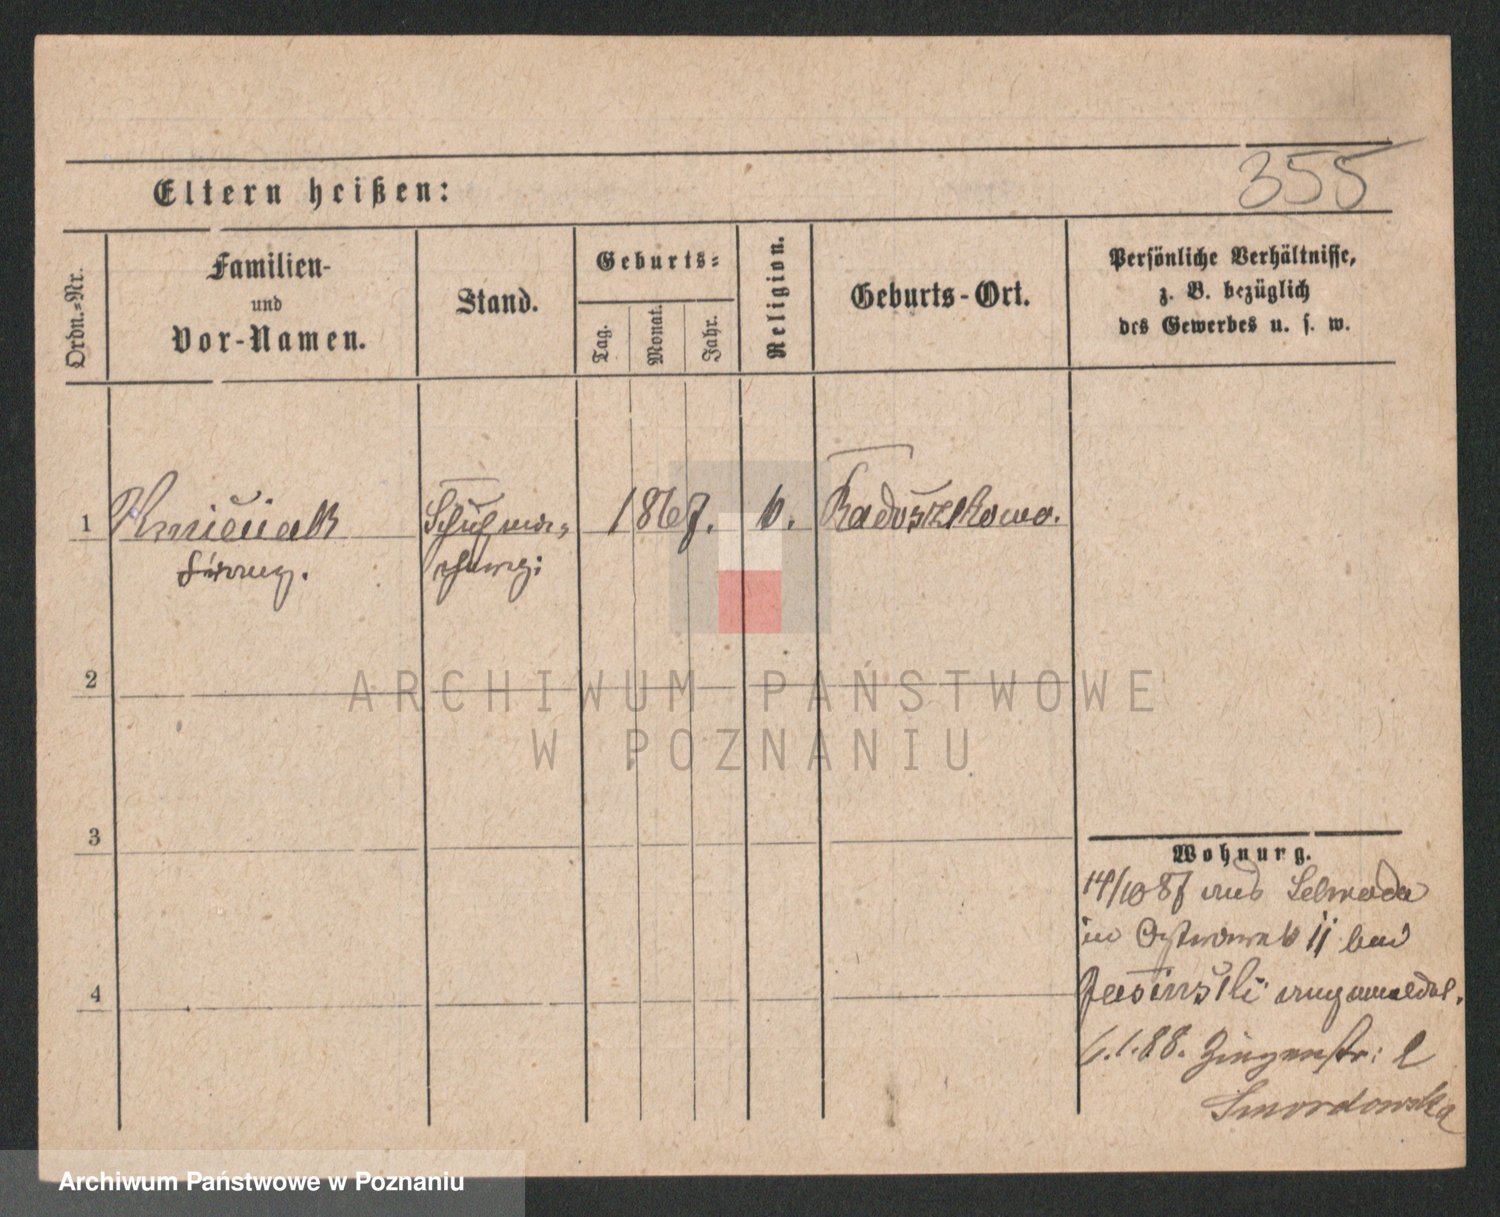 355
Eltern heißen:
Ordn.-Nr.
Familien-
und
Vor-Namen.
Stand.
Geburts-
Tag.
Monat.
Jahr.
Religion.
Geburts-Ort.
Persönliche Verhältnisse,
z. B. bezüglich
des Gewerbes u. s. w.
1
Kmieciak
Franz.
Schuhma-
1867.
Radoszkowo.
2
3
4
Wohnung.
14/10 87 aus
in Ostrowek 11 bei
Jasinski angemeldet.
6.1.88. Ziegenstr: 2
Smordowska
ARCHIWUM PAŃSTWOWE
W POZNANIU
Archiwum Państwowe w Poznaniu